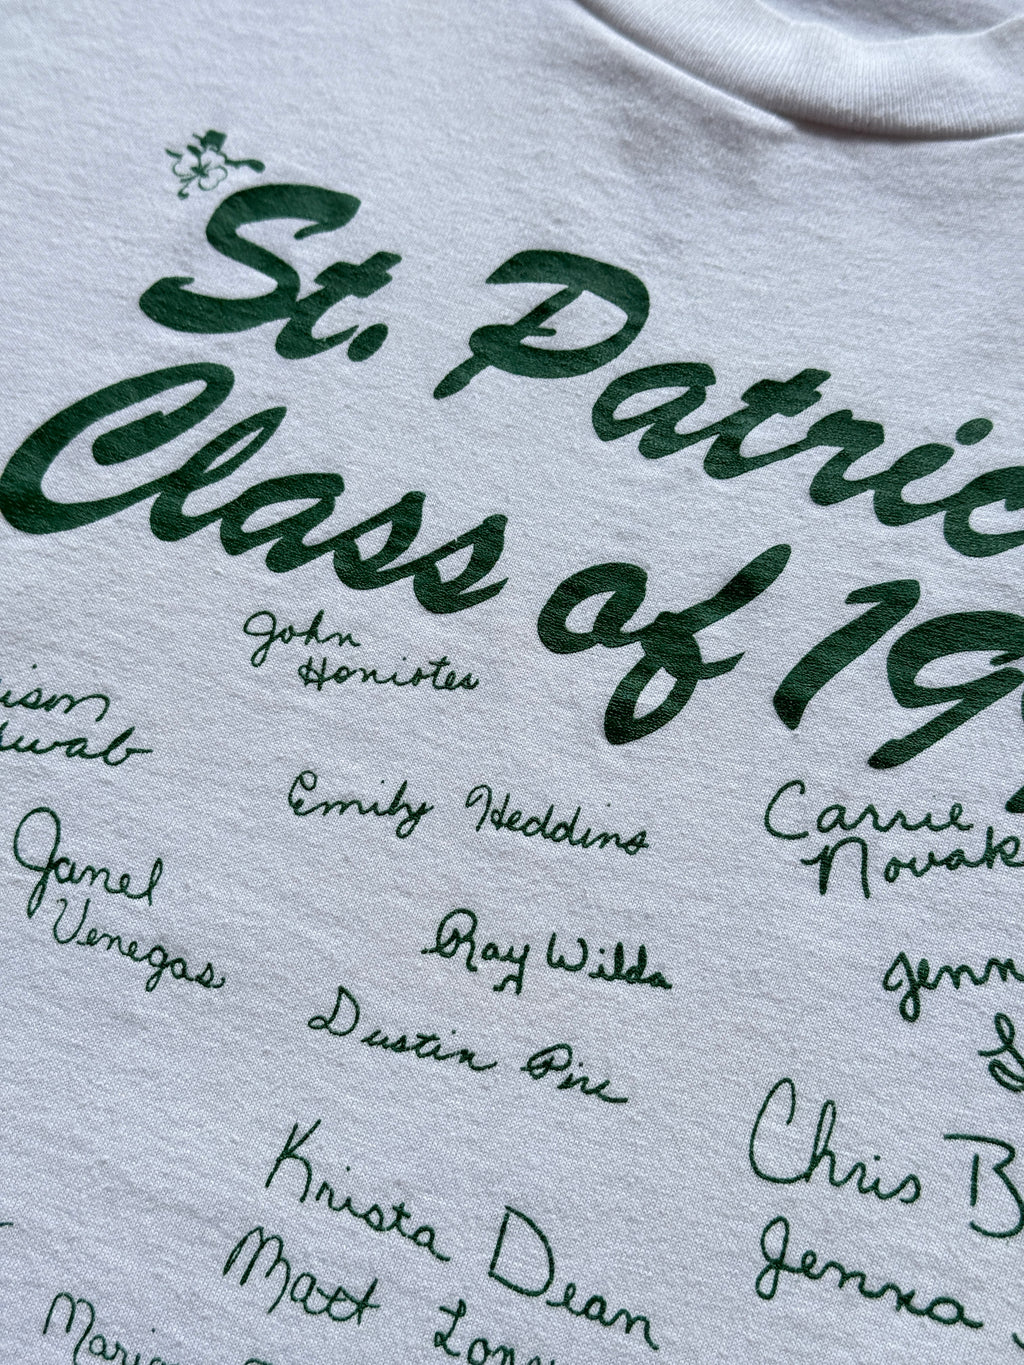 St. Patric
Class of 19
John
Honiotes
ison
hwab
Emily Heddins
Carrie
Novak
Janel
Venegas
Ray Wilda
Jenn
Dustin Pire
Chris B
Krista Dean
Jenna
Matt Long
Maria